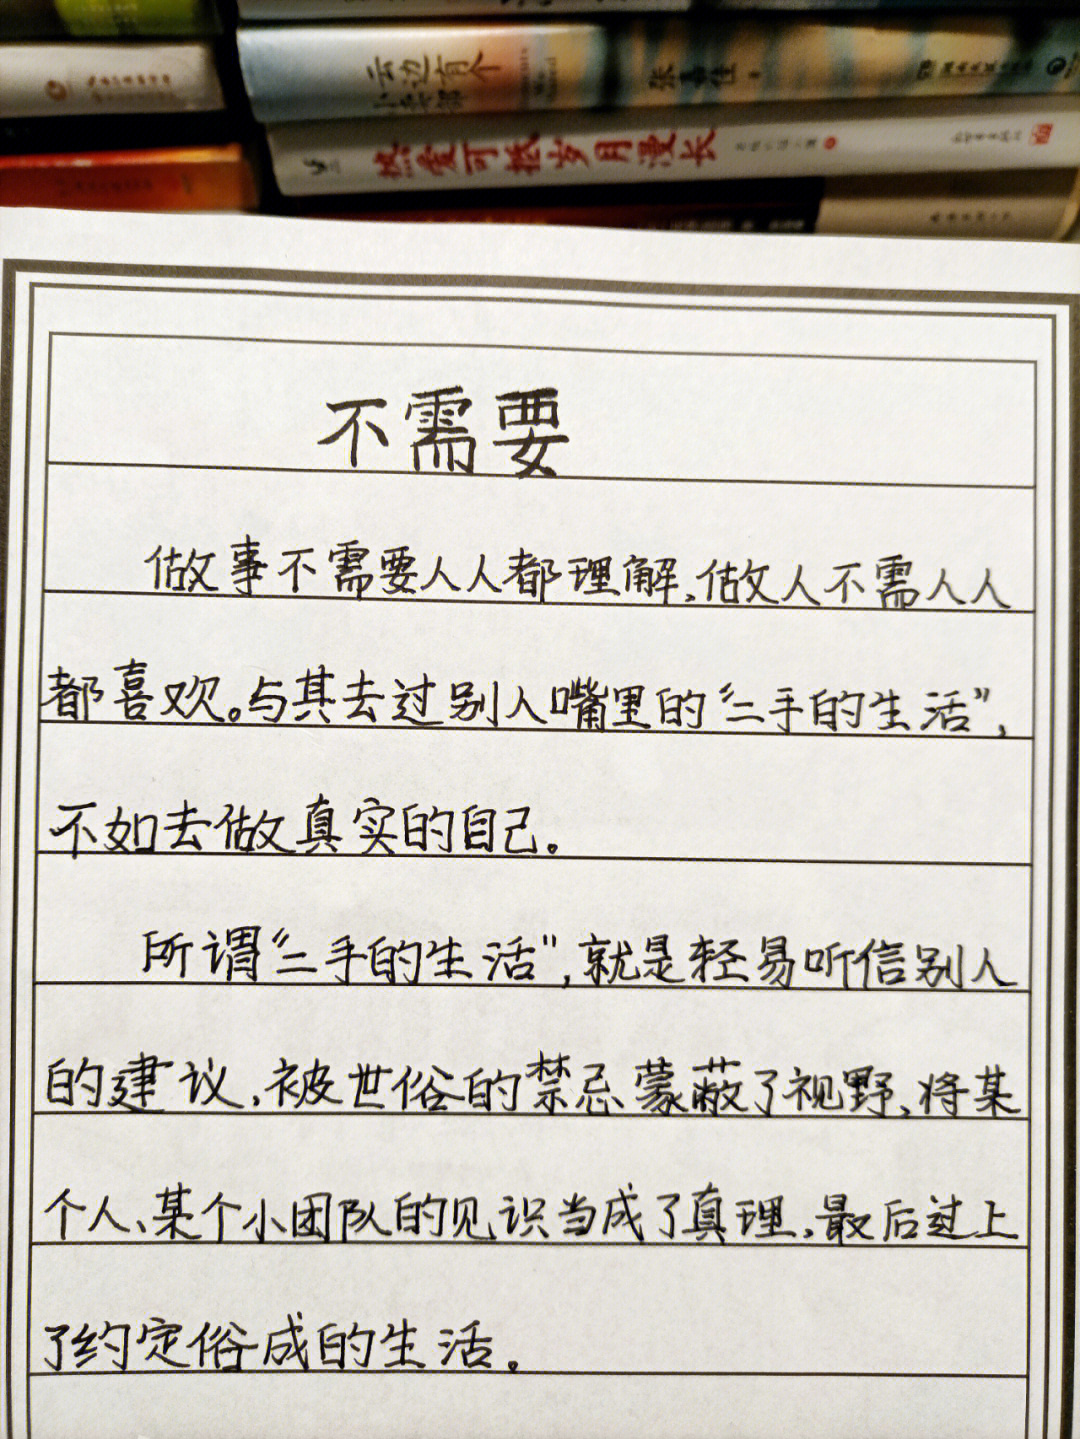 云边有个
小卖部
张嘉佳
热爱可抵岁月漫长
不需要
做事不需要人人都理解,做人不需人人
都喜欢。与其去过别人嘴里的“二手的生活”,
不如去做真实的自己。
所谓“二手的生活”,就是轻易听信别人
的建议,被世俗的禁忌蒙蔽了视野,将某
个人、某个小团队的见识当成了真理,最后过上
了约定俗成的生活。